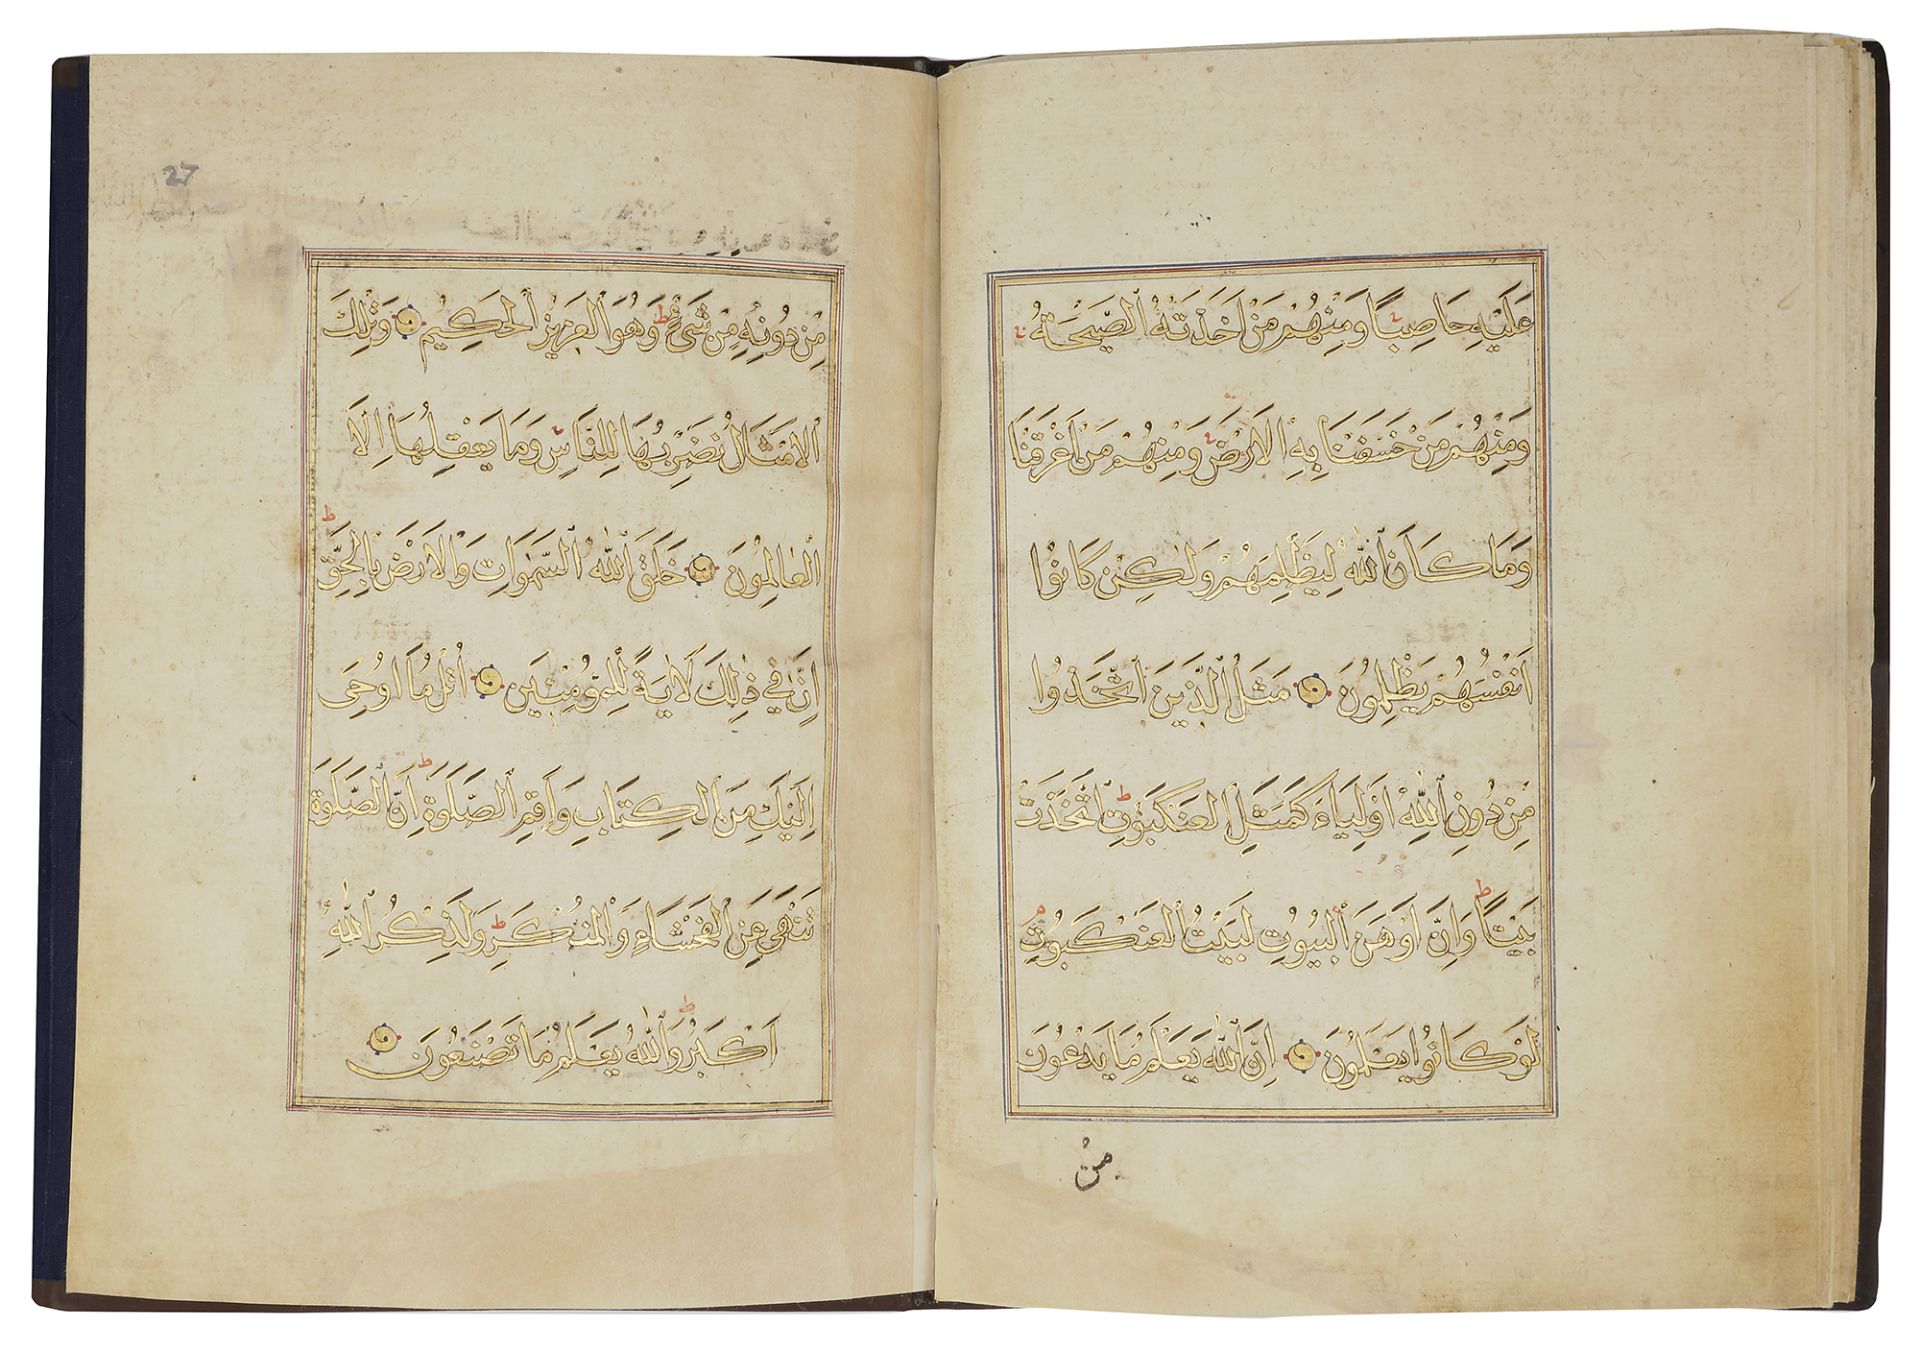 عَلَيْهِ حَاصِبًا وَمِنْهُمْ مَنْ اَخَذَتْهُ الصَّيْحَةُ
وَمِنْهُمْ مَنْ خَسَفْنَا بِهِ الْاَرْضَ وَمِنْهُمْ مَنْ اَغْرَقْنَا
وَمَا كَانَ اللّٰهُ لِيَظْلِمَهُمْ وَلٰكِنْ كَانُوا
اَنْفُسَهُمْ يَظْلِمُونَ مَثَلُ الَّذِينَ اتَّخَذُوا
مِنْ دُونِ اللّٰهِ اَوْلِيَاءَ كَمَثَلِ الْعَنْكَبُوتِ اتَّخَذَتْ
بَيْتًا وَاِنَّ اَوْهَنَ الْبُيُوتِ لَبَيْتُ الْعَنْكَبُوتِ
لَوْ كَانُوا يَعْلَمُونَ اِنَّ اللّٰهَ يَعْلَمُ مَا يَدْعُونَ
مِنْ
27
مِنْ دُونِهِ مِنْ شَیْءٍ وَهُوَ الْعَزِيزُ الْحَكِيمُ وَتِلْكَ
الْاَمْثَالُ نَضْرِبُهَا لِلنَّاسِ وَمَا يَعْقِلُهَا اِلَّا
الْعَالِمُونَ خَلَقَ اللّٰهُ السَّمٰوَاتِ وَالْاَرْضَ بِالْحَقِّ
اِنَّ فِي ذٰلِكَ لَاٰيَةً لِلْمُؤْمِنِينَ اُتْلُ مَا اُوحِیَ
اِلَيْكَ مِنَ الْكِتَابِ وَاَقِمِ الصَّلٰوةَ اِنَّ الصَّلٰوةَ
تَنْهَى عَنِ الْفَحْشَاءِ وَالْمُنْكَرِ وَلَذِكْرُ اللّٰهِ
اَكْبَرُ وَاللّٰهُ يَعْلَمُ مَا تَصْنَعُونَ